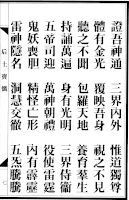 證吾神通 三界內外 惟道獨尊
體有金光 覆映吾身 視之不見
聽之不聞 包羅天地 養育羣生
持誦萬遍 身有光明 三界侍衛
五帝司迎 萬神朝禮 役使雷霆
鬼妖喪膽 精怪亡形 內有霹靂
雷神隱名 洞慧交徹 五炁騰騰
后土寶懺 七